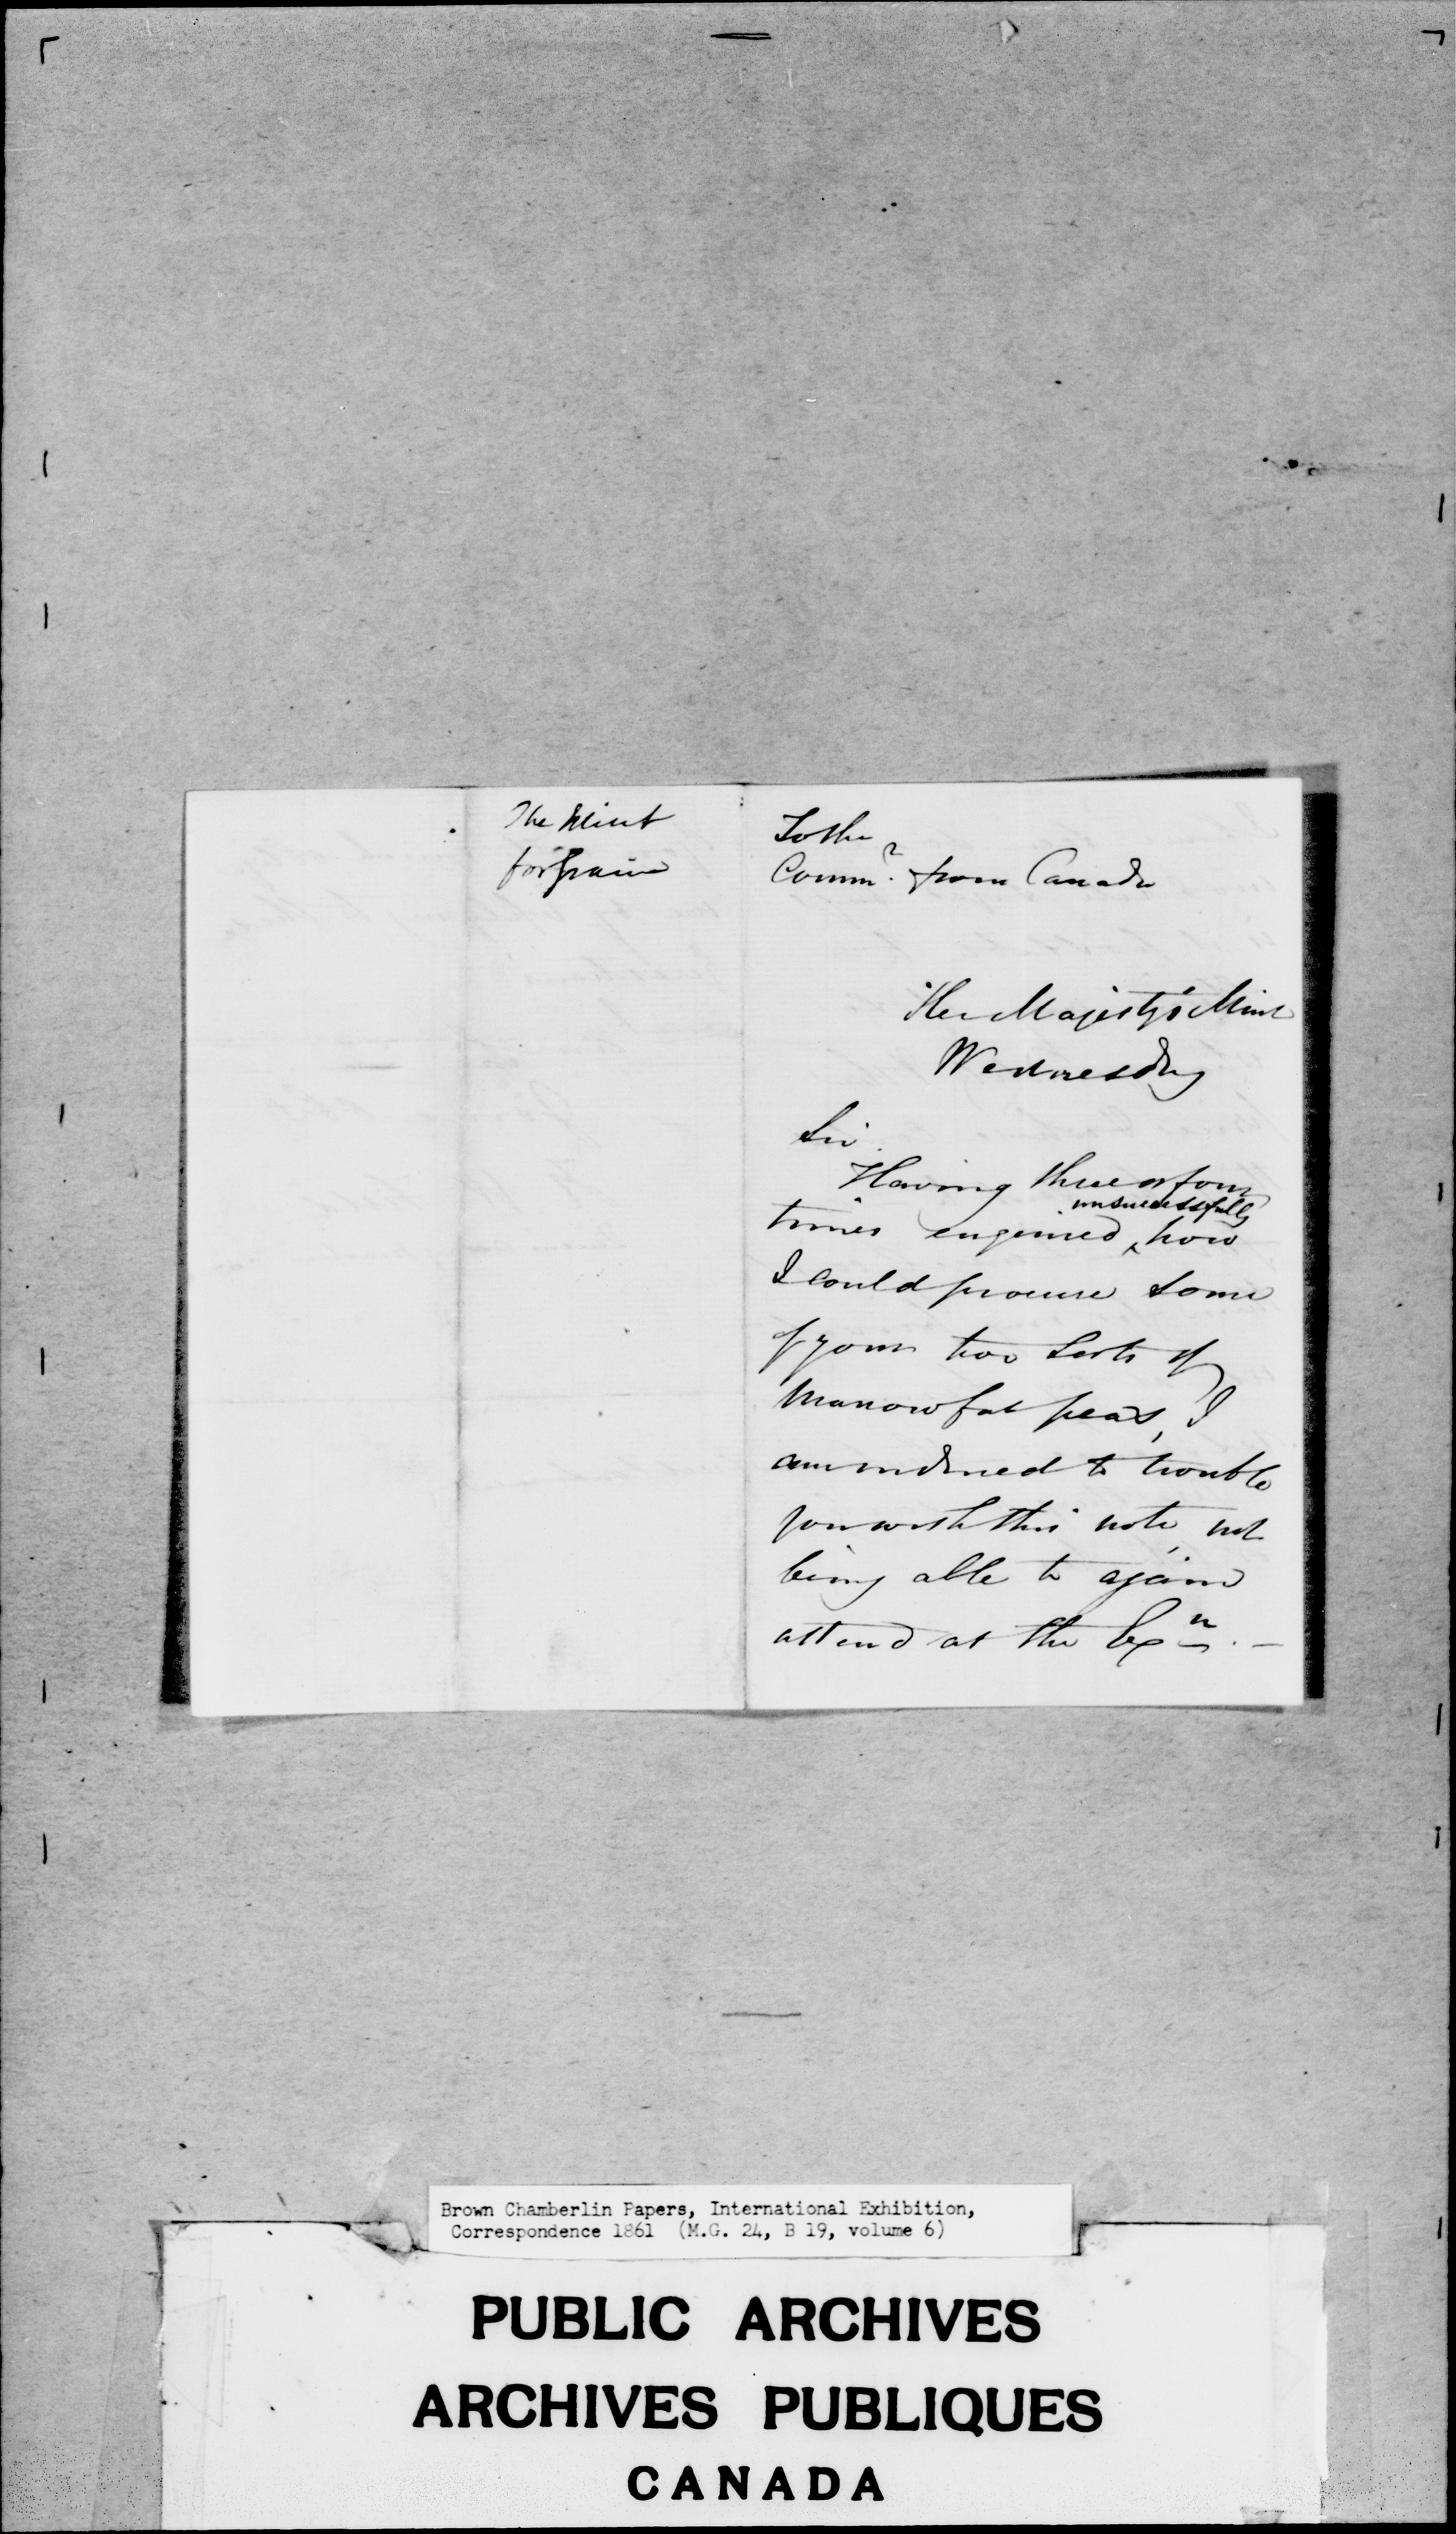 The Mint
for Grain
To the
Commr. from Canada
Her Majesty's Mint
Wednesday
Sir
Having three or four
unsuccessfully
times enquired ^ how
I could procure some
of your two sorts of
Marrowfat peas, I
am induced to trouble
you with this note, not
being able to again
attend at the Exn. —
Brown Chamberlin Papers, International Exhibition,
Correspondence 1861 (M.G. 24, B 19, volume 6)
PUBLIC ARCHIVES
ARCHIVES PUBLIQUES
CANADA